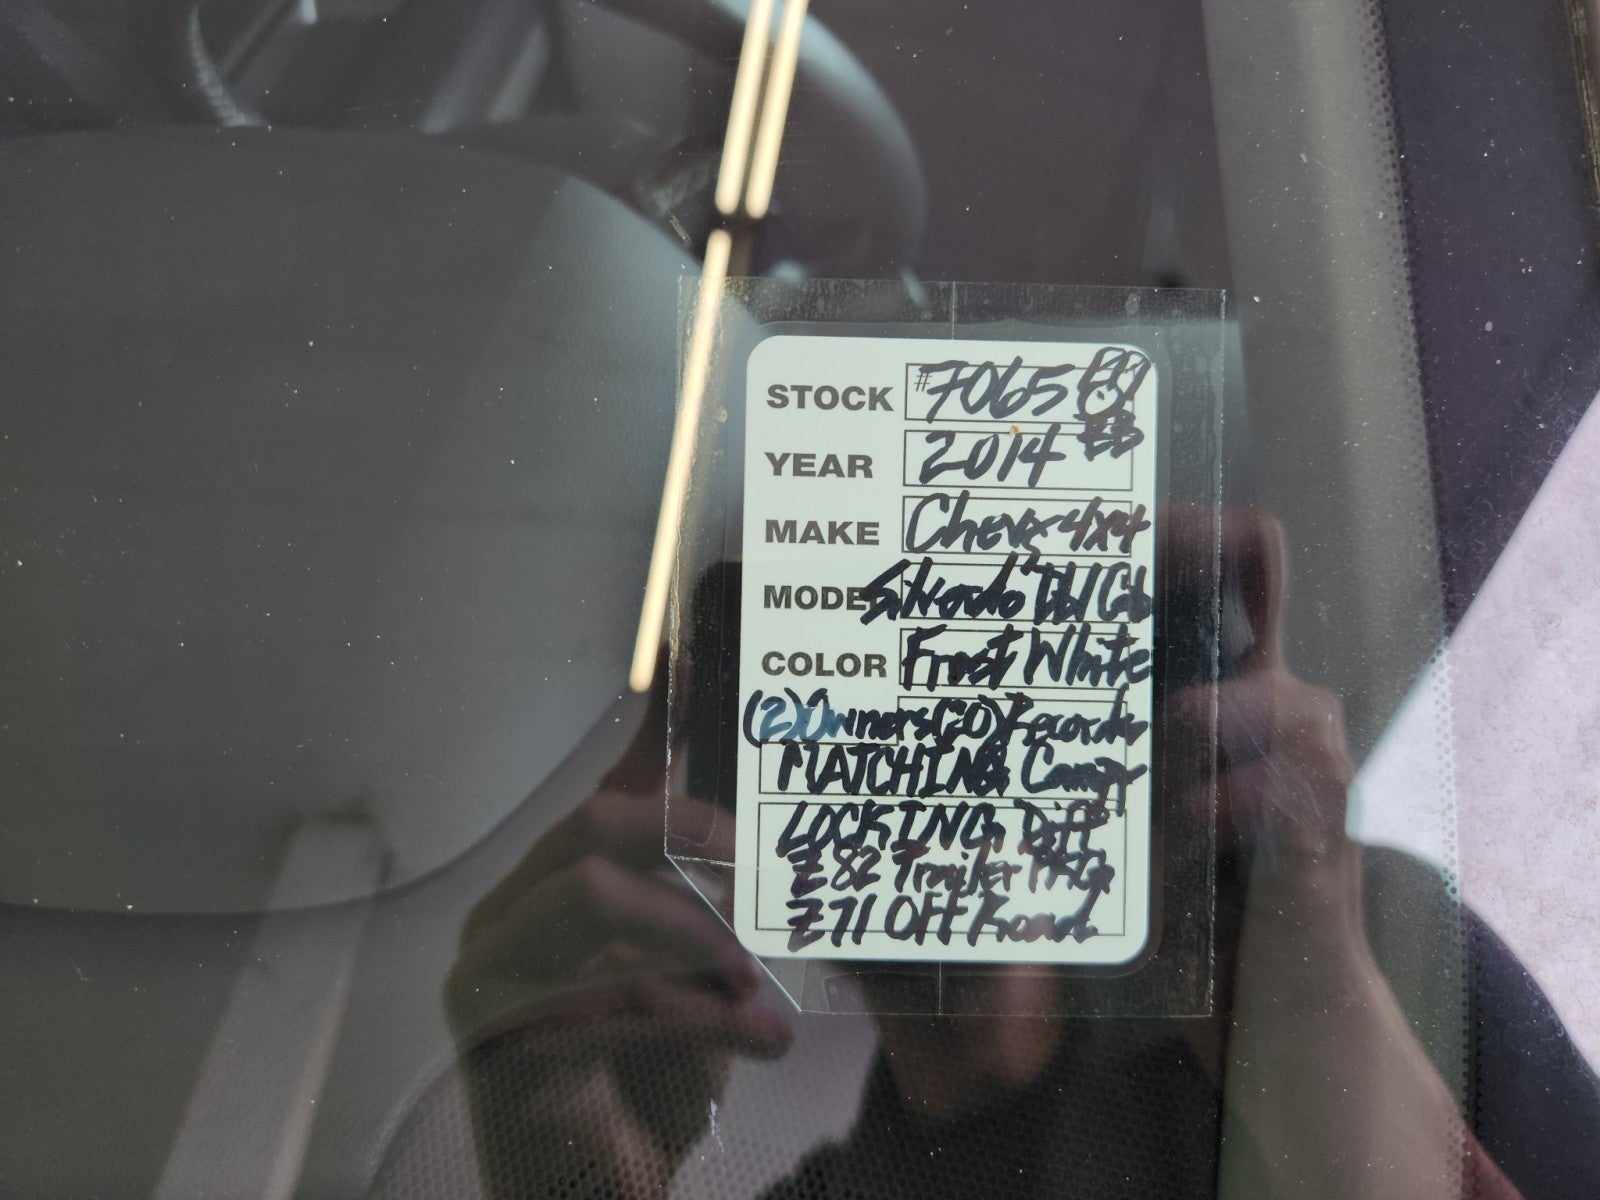 STOCK #7065
YEAR 2014
MAKE Chevy 4x4
MODEL Silverado Dbl Cab
COLOR Frost White
(2) Owners (20) Records
MATCHING Canopy
LOCKING Diff
Z82 Trailer PKG
Z71 Off Road